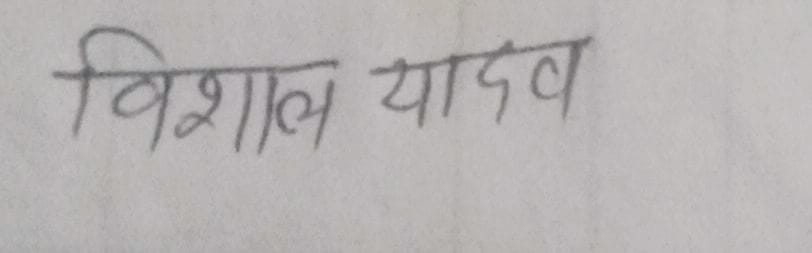 विशाल यादव